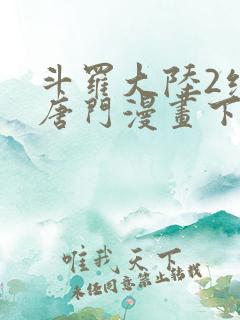 斗羅大陸2
唐門漫畫下
唯我天下
未经同意禁止转载